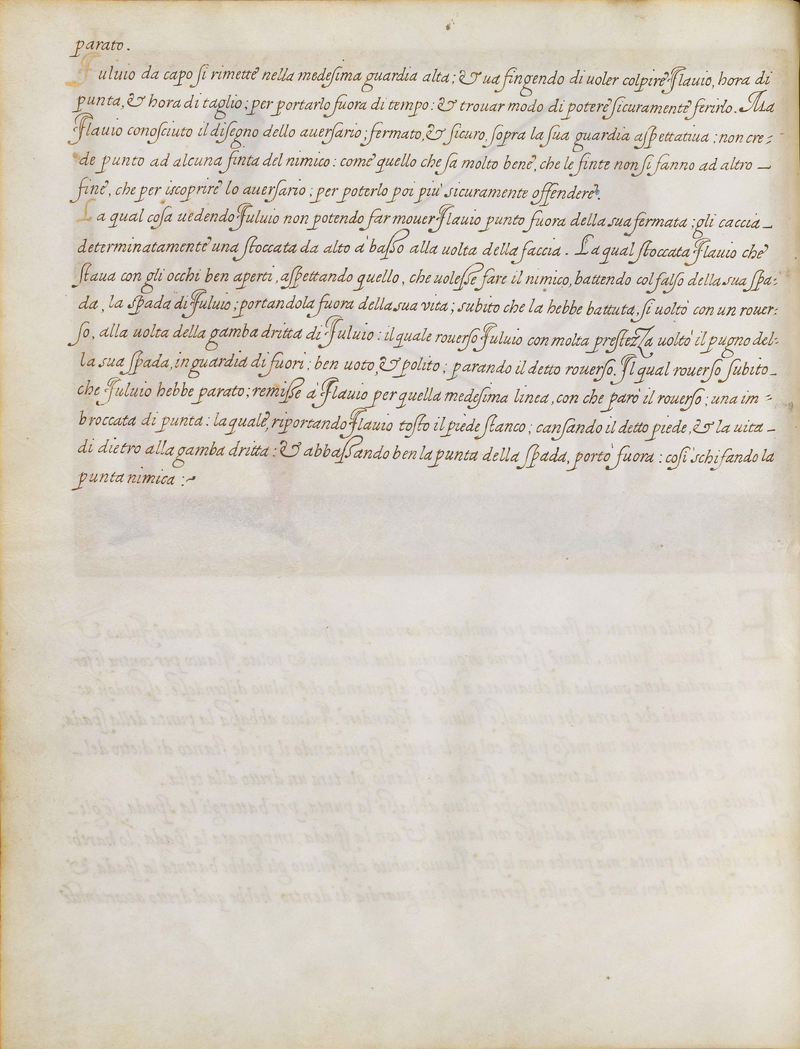 parato.
Fuluio da capo si rimette nella medesima guardia alta; & ua fingendo di uoler colpire Flauio, hora di
punta, & hora di taglio; per portarlo fuora di tempo: & trouar modo di potere sicuramente ferirlo. Ma
Flauio conosciuto il disegno dello auersario; fermato, & sicuro, sopra la sua guardia aspettatiua; non cre-
de punto ad alcuna finta del nimico: come quello che sa molto bene, che le finte non si fanno ad altro
fine, che per iscoprire lo auersario; per poterlo poi piu sicuramente offendere.
La qual cosa uedendo Fuluio non potendo far mouer Flauio punto fuora della sua fermata; gli caccia
determinatamente una stoccata da alto à basso alla uolta della faccia. La qual stoccata Flauio che
staua con gli occhi ben aperti, aspettando quello, che uolesse fare il nimico, battendo col falso della sua spa-
da, la spada di Fuluio; portandola fuora della sua vita; subito che la hebbe battuta, si uoltò con un rouer-
so, alla uolta della gamba dritta di Fuluio: il quale rouerso Fuluio con molta prestezza uoltò il pugno del-
la sua spada, in guardia di fuori; ben uoto, & polito; parando il detto rouerso. Il qual rouerso subito
che Fuluio hebbe parato; remisse à Flauio per quella medesima linea, con che parò il rouerso; una im-
broccata di punta: la quale, riportando Flauio tosto il piede stanco; cansando il detto piede, & la uita
di dietro alla gamba dritta: & abbassando ben la punta della spada, portò fuora: così schifando la
punta nimica:~